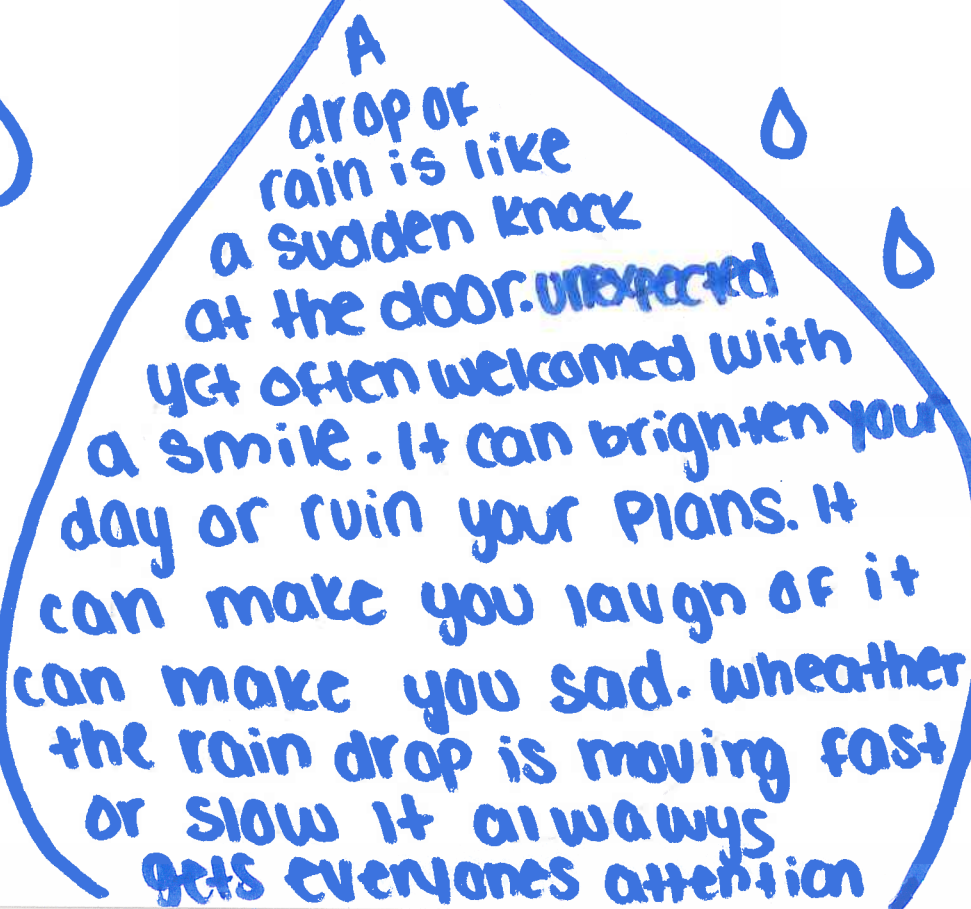 A
drop of
rain is like
a sudden knock
at the door. unexpected
yet often welcomed with
a smile. It can brighten your
day or ruin your plans. It
can make you laugh of it
can make you sad. wheather
the rain drop is moving fast
or slow it alwawys
gets everyones attention